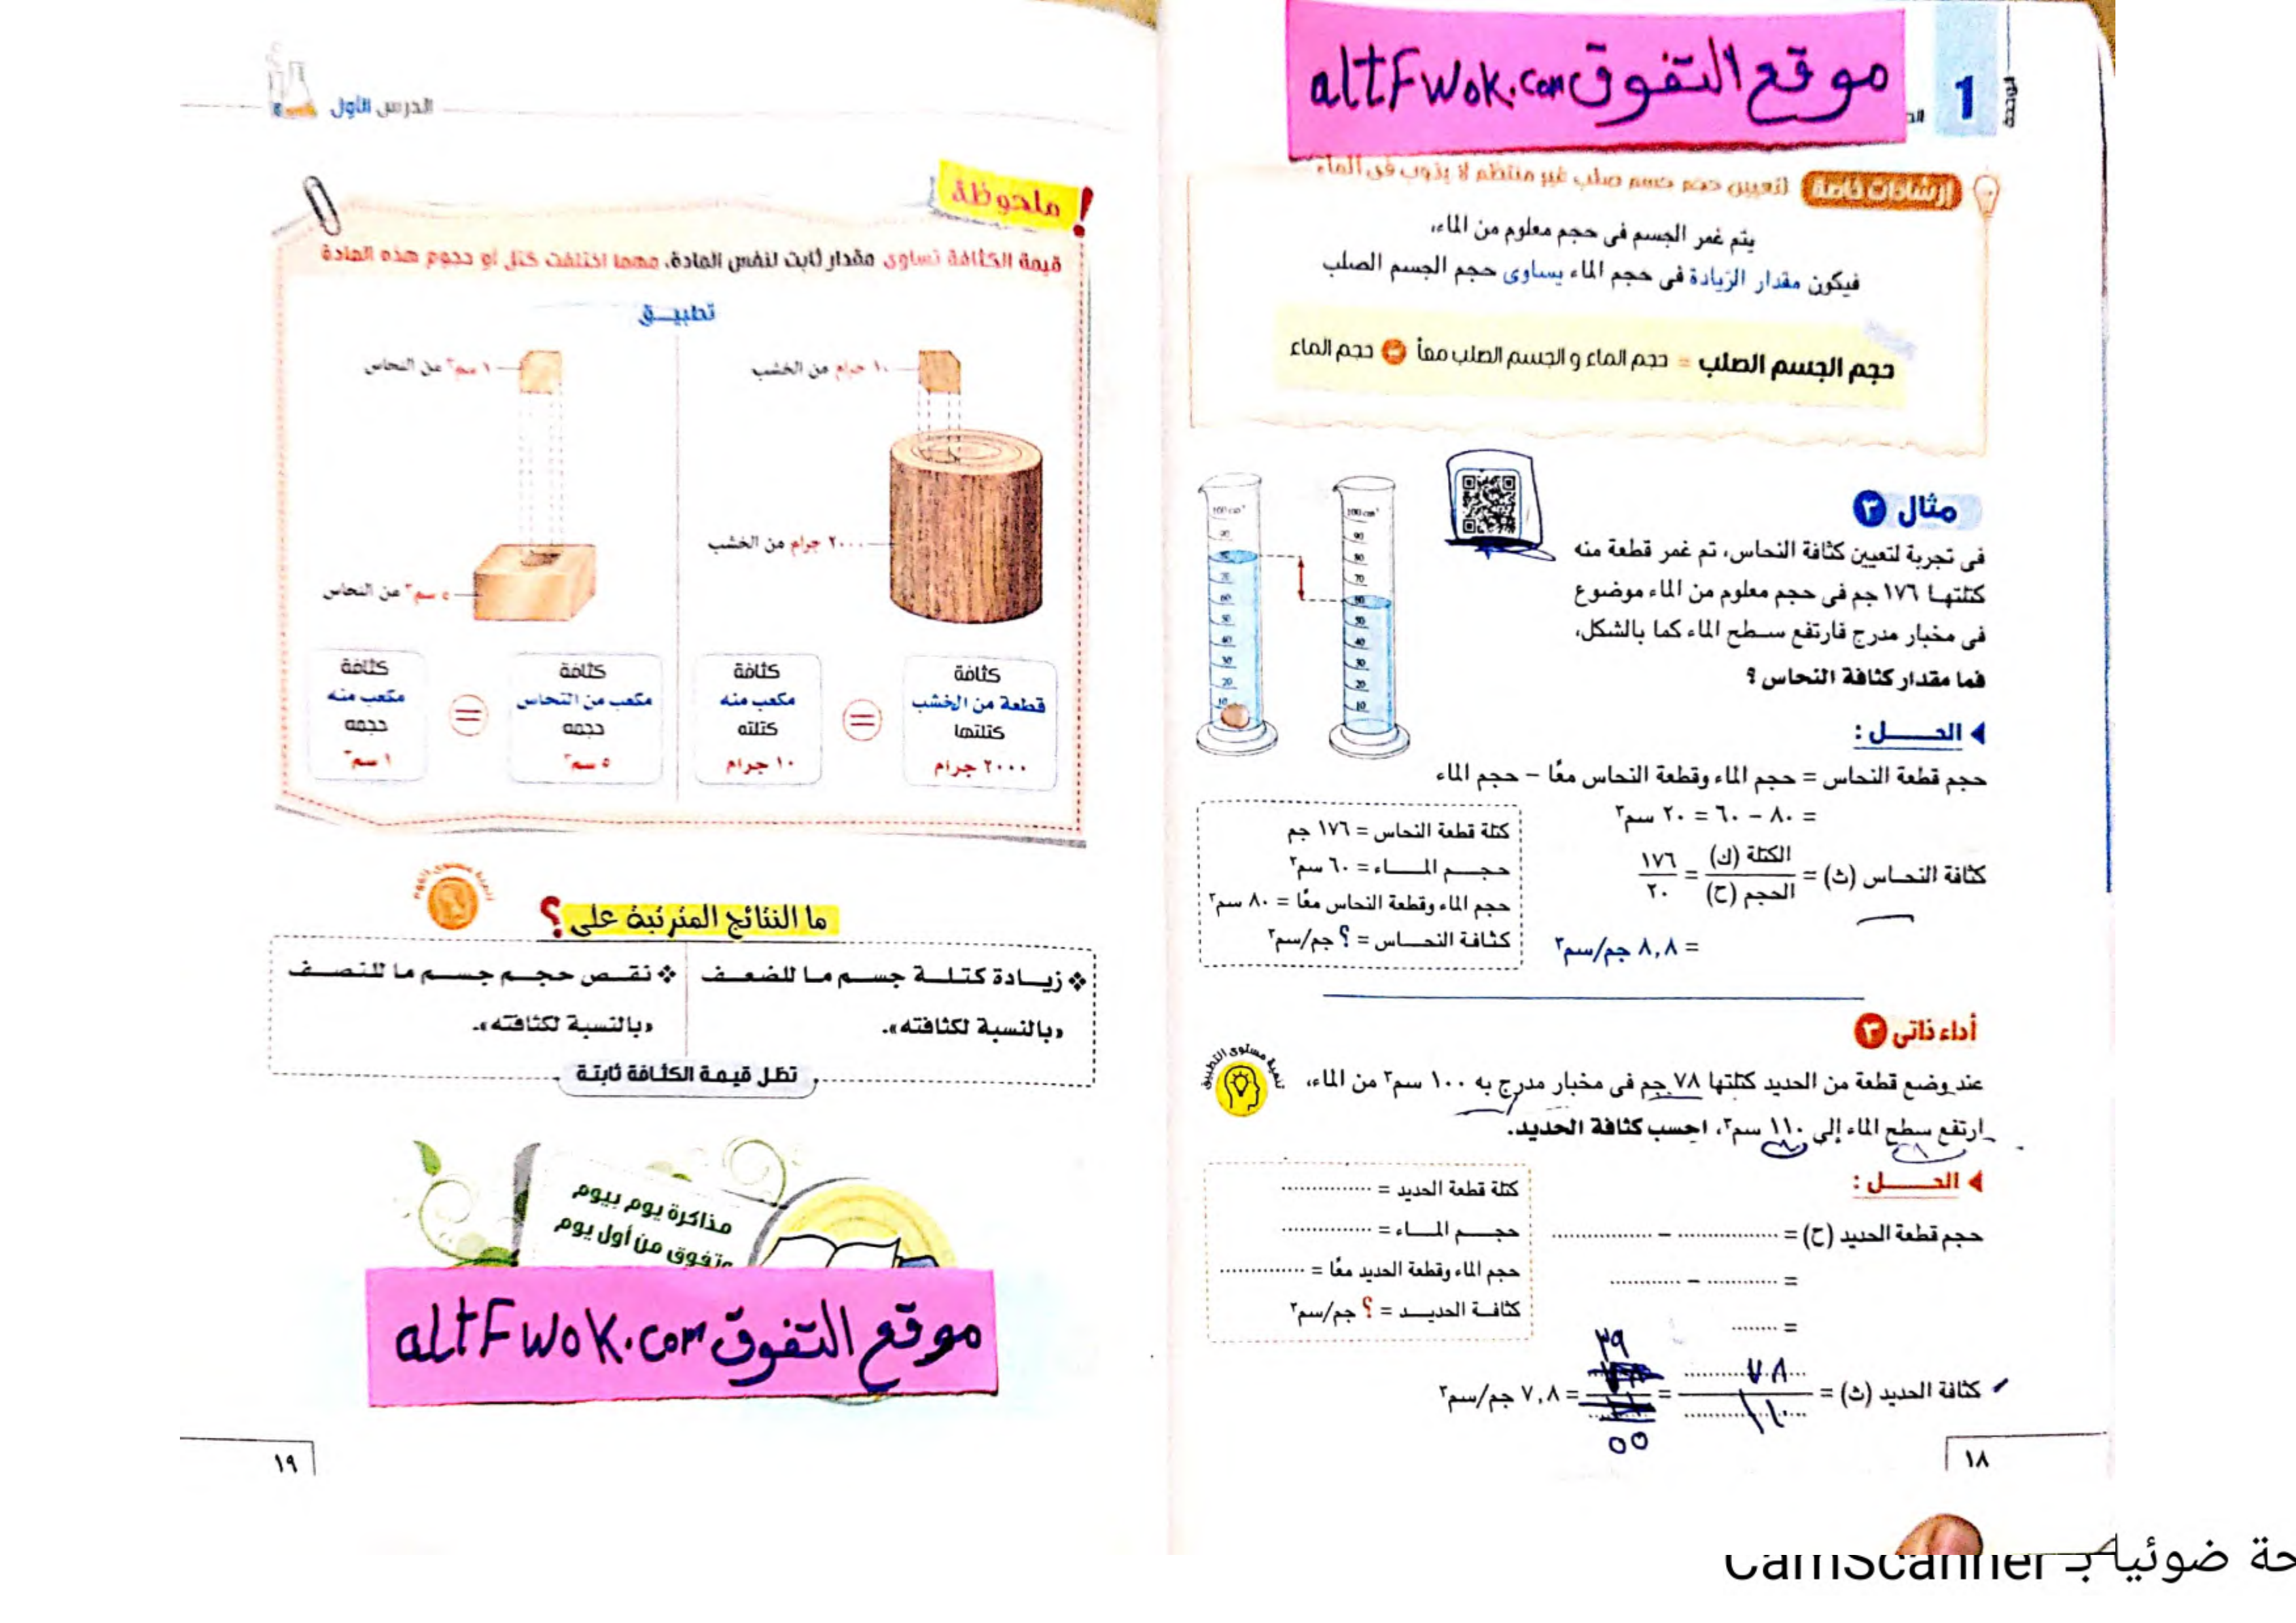 موقع التفوق altFwok.com
1
الوحدة
إرشادات خاصة لتعيين حجم جسم صلب غير منتظم لا يذوب فى الماء
يتم غمر الجسم فى حجم معلوم من الماء،
فيكون مقدار الزيادة فى حجم الماء يساوى حجم الجسم الصلب
حجم الجسم الصلب = حجم الماء و الجسم الصلب معاً - حجم الماء
مثال ٣
فى تجربة لتعيين كثافة النحاس، تم غمر قطعة منه
كتلتها ١٧٦ جم فى حجم معلوم من الماء موضوع
فى مخبار مدرج فارتفع سطح الماء كما بالشكل،
فما مقدار كثافة النحاس ؟
الحـــل :
حجم قطعة النحاس = حجم الماء وقطعة النحاس معًا – حجم الماء
= ٨٠ – ٦٠ = ٢٠ سم٣
كثافة النحاس (ث) = الكتلة (ك) / الحجم (ح) = ١٧٦ / ٢٠
= ٨,٨ جم/سم٣
كتلة قطعة النحاس = ١٧٦ جم
حجم الماء = ٦٠ سم٣
حجم الماء وقطعة النحاس معًا = ٨٠ سم٣
كثافة النحاس = ؟ جم/سم٣
أداء ذاتى ٣
تنمية مستوى التطبيق
عند وضع قطعة من الحديد كتلتها ٧٨ جم فى مخبار مدرج به ١٠٠ سم٣ من الماء،
ارتفع سطح الماء إلى ١١٠ سم٣، احسب كثافة الحديد.
الحـــل :
حجم قطعة الحديد (ح) = .................. – ..................
= ............ – ............
= ........
كثافة الحديد (ث) = ٧٨ / ١١٠ = ٣٩ / ٥٥ = ٧,٨ جم/سم٣
كتلة قطعة الحديد = ................
حجم الماء = ................
حجم الماء وقطعة الحديد معًا = ...............
كثافة الحديد = ؟ جم/سم٣
١٨
الدرس الأول
ملحوظة !
قيمة الكثافة تساوى مقدار ثابت لنفس المادة، مهما اختلفت كتل أو حجوم هذه المادة
تطبيـق
١٠ جرام من الخشب
٢٠٠٠ جرام من الخشب
١ سم٣ من النحاس
٥ سم٣ من النحاس
كثافة قطعة من الخشب كتلتها ٢٠٠٠ جرام = كثافة مكعب منه كتلته ١٠ جرام
كثافة مكعب من النحاس حجمه ٥ سم٣ = كثافة مكعب منه حجمه ١ سم٣
ما النتائج المترتبة على ؟
زيـادة كتلـة جسـم مـا للضعـف
«بالنسبة لكثافته».
نقـص حجـم جسـم مـا للنصـف
«بالنسبة لكثافته».
تظل قيمة الكثافة ثابتة
مذاكرة يوم بيوم
وتفوق من أول يوم
موقع التفوق altFwok.com
١٩
حة ضوئيا بـ CamScanner